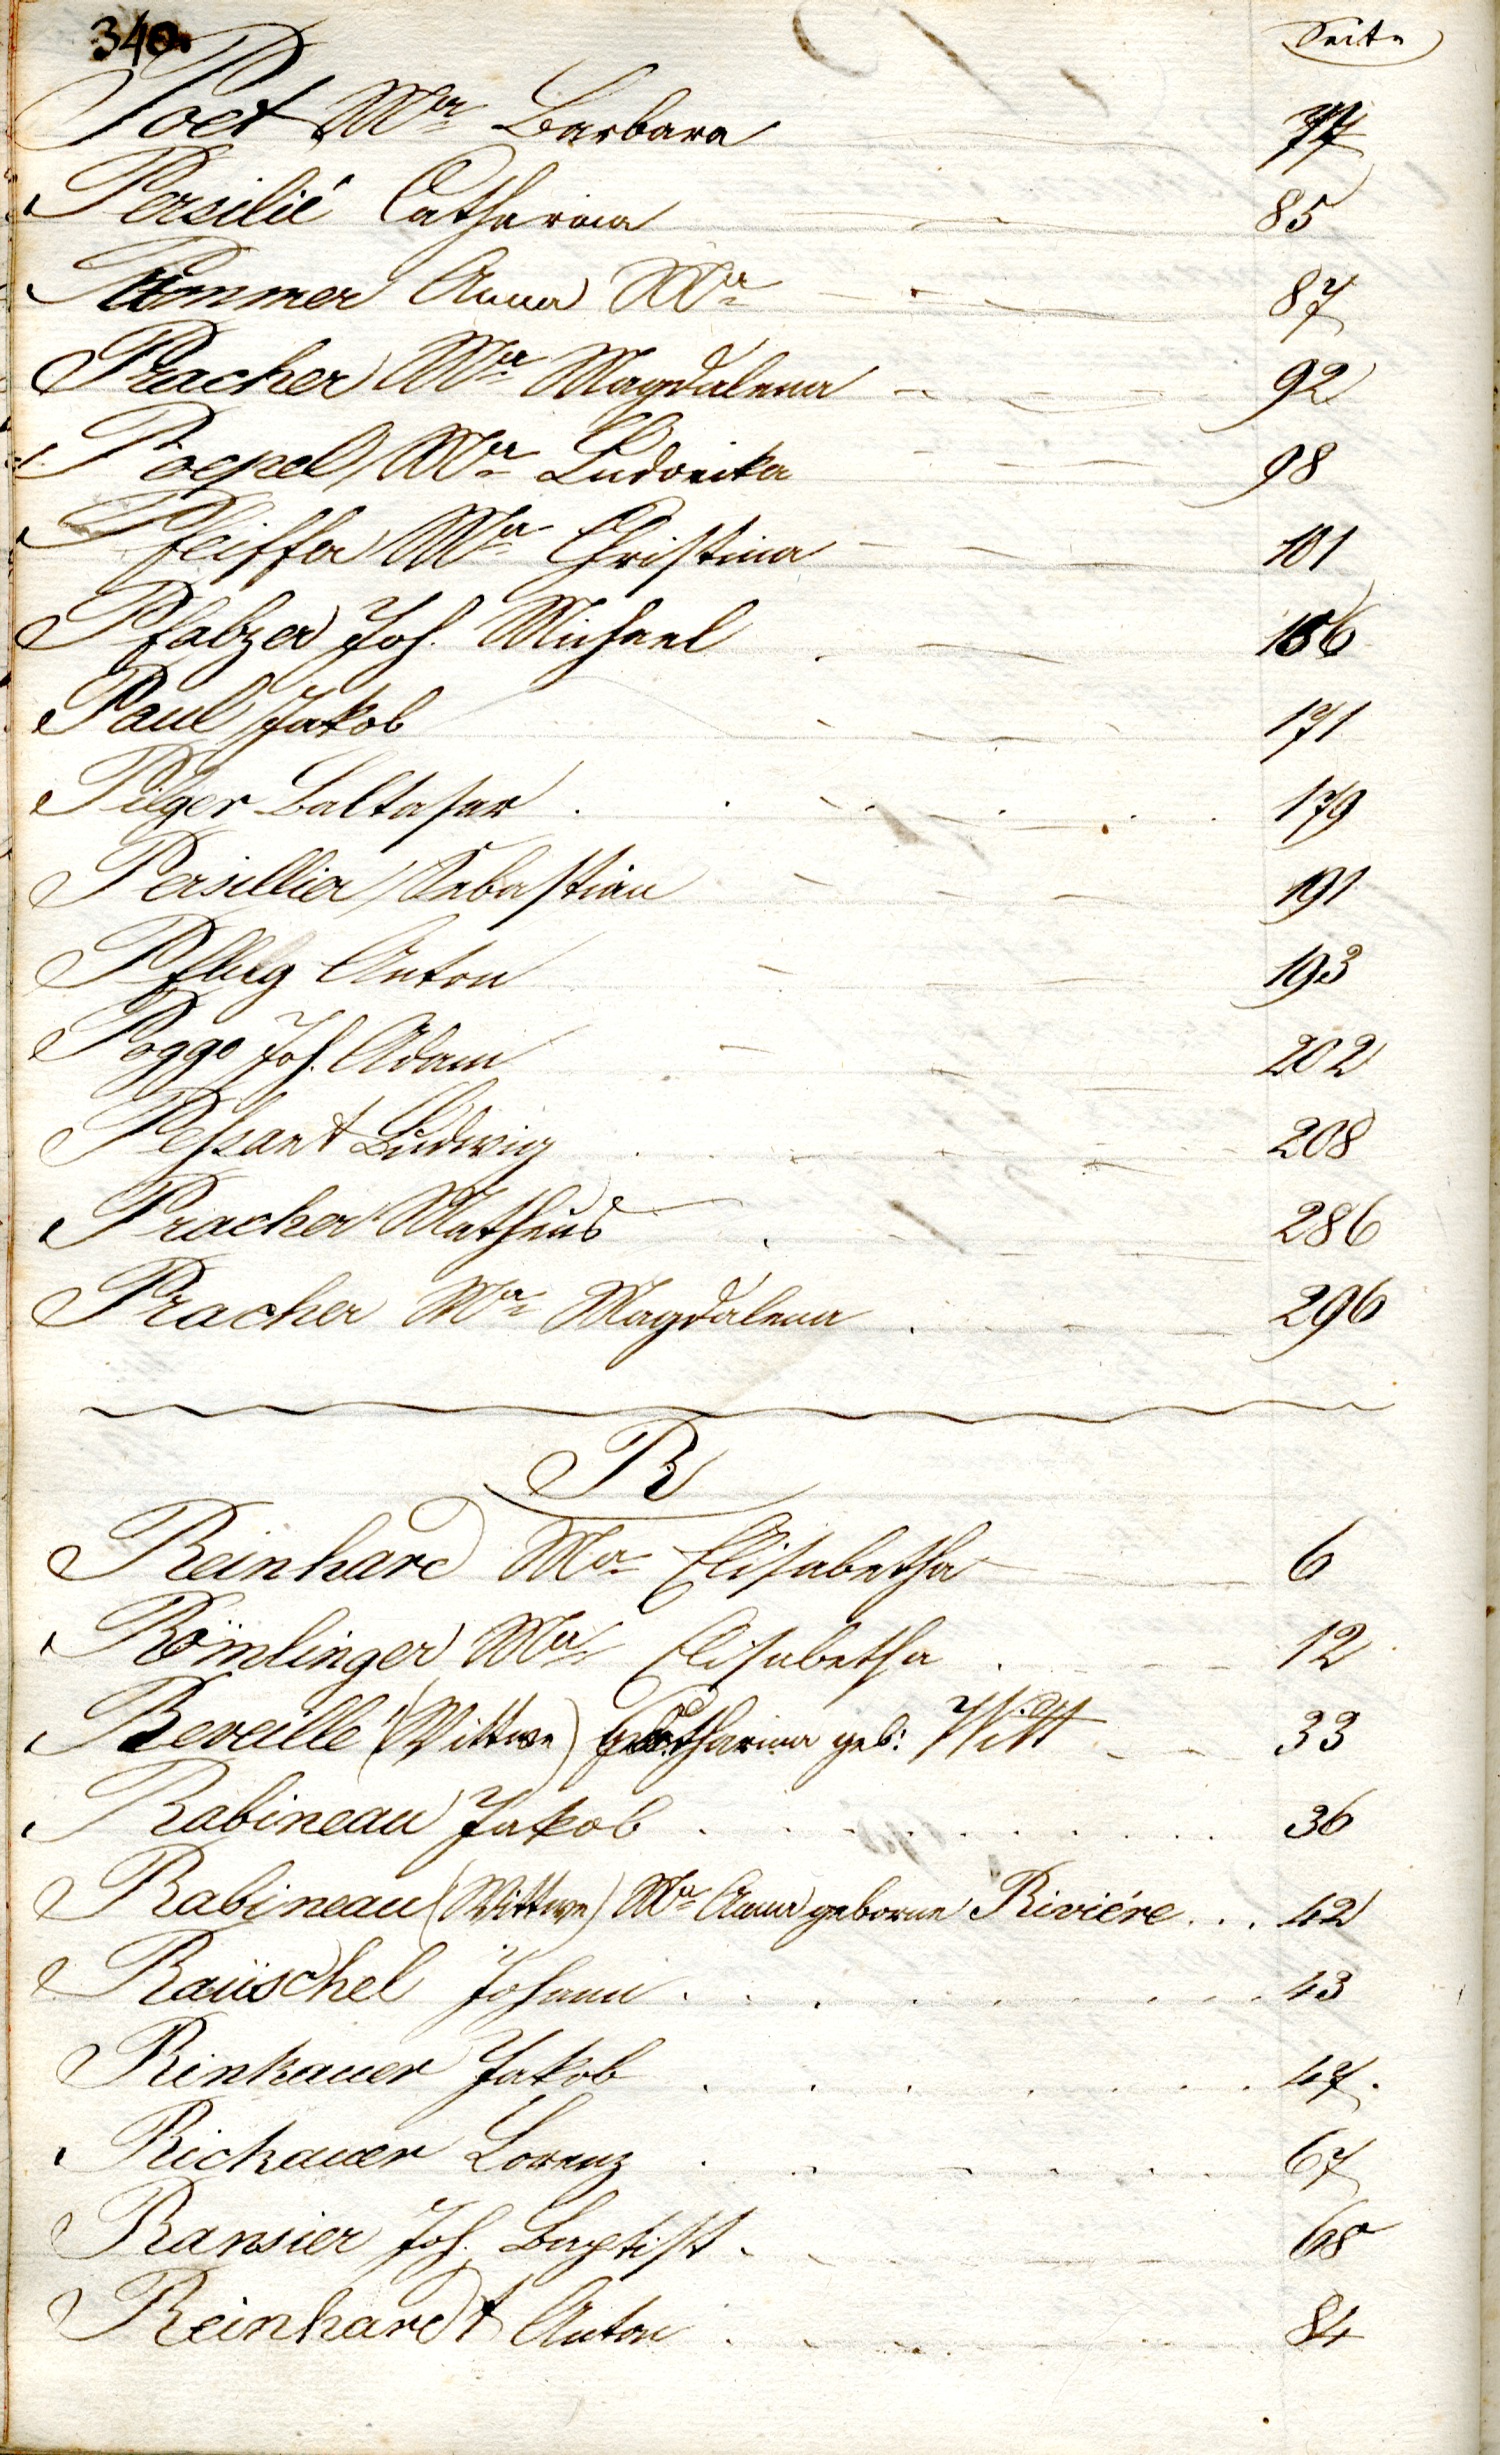 340.
Seite
Poet Mª Barbara 77
Persilié Catharina 85
Pommer Anna Mª 87
Pracher Mª Magdalena 92
Poepel Mª Ludovika 98
Pfeiffer Mª Christina 101
Pfalzer Joh. Michael 156
Paul Jakob 171
Pilger Baltasar 179
Persillier Sebastian 191
Pflug Anton 193
Poggo Joh. Adam 202
Pessant Ludwig 208
Pracher Mathias 286
Pracher Mª Magdalena 296
R
Reinhard Mª Elisabetha 6
Römlinger Mª Elisabetha 12
Reveille (Wittwe) Catharina geb: Witt 33
Rabineau Jakob 36
Rabineau (Wittwe) Mª Anna geborne Riviére 42
Raüschel Johann 43
Rinkauer Jakob 47.
Rickauer Lorenz 67
Ransier Joh. Baptist 68
Reinhardt Anton 84